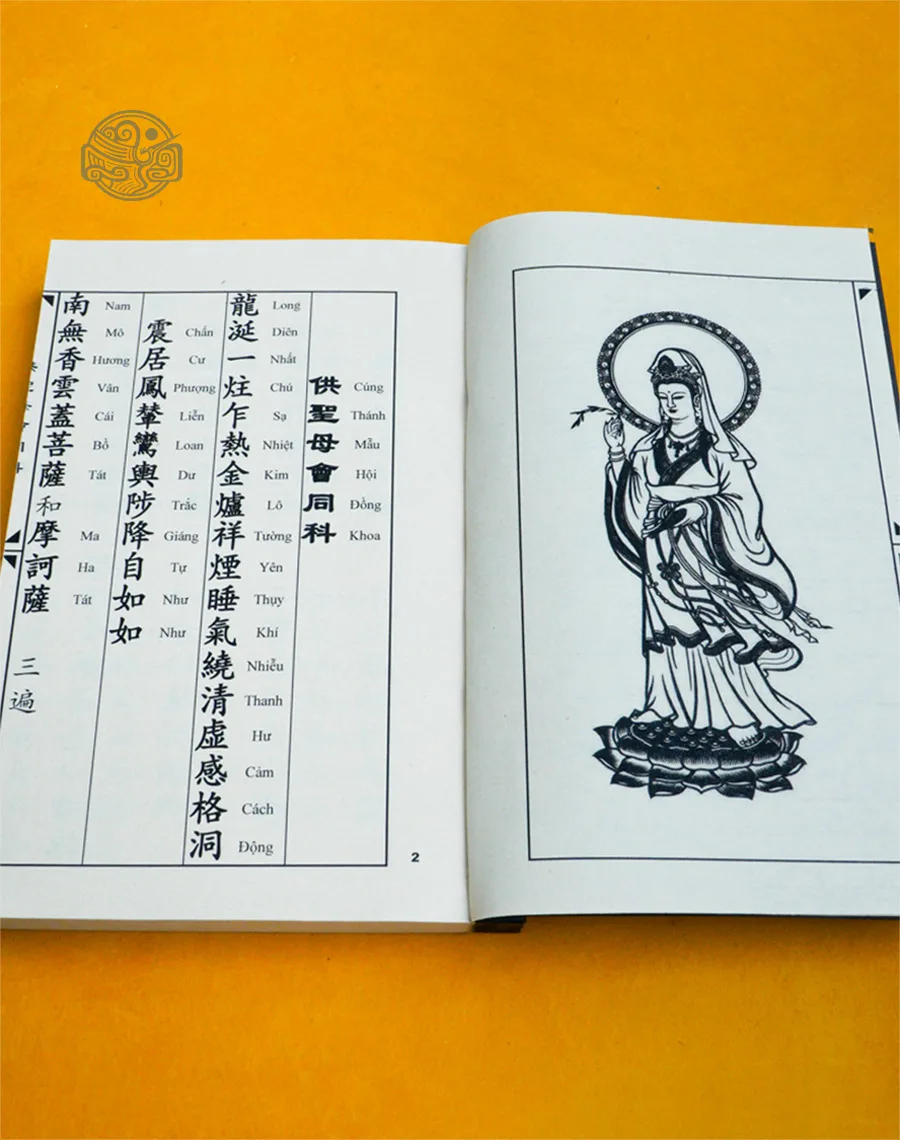 供聖母會同科
Cúng Thánh Mẫu Hội Đồng Khoa
龍涎一炷乍熱金爐祥煙睡氣繞清虚感格洞
Long Diên Nhất Chú Sạ Nhiệt Kim Lô Tường Yên Thụy Khí Nhiễu Thanh Hư Cảm Cách Động
震居鳳輦鸞輿陟降自如如
Chấn Cư Phượng Liễn Loan Dư Trắc Giáng Tự Như Như
南無香雲蓋菩薩和摩訶薩 三遍
Nam Mô Hương Vân Cái Bồ Tát Ma Ha Tát
2